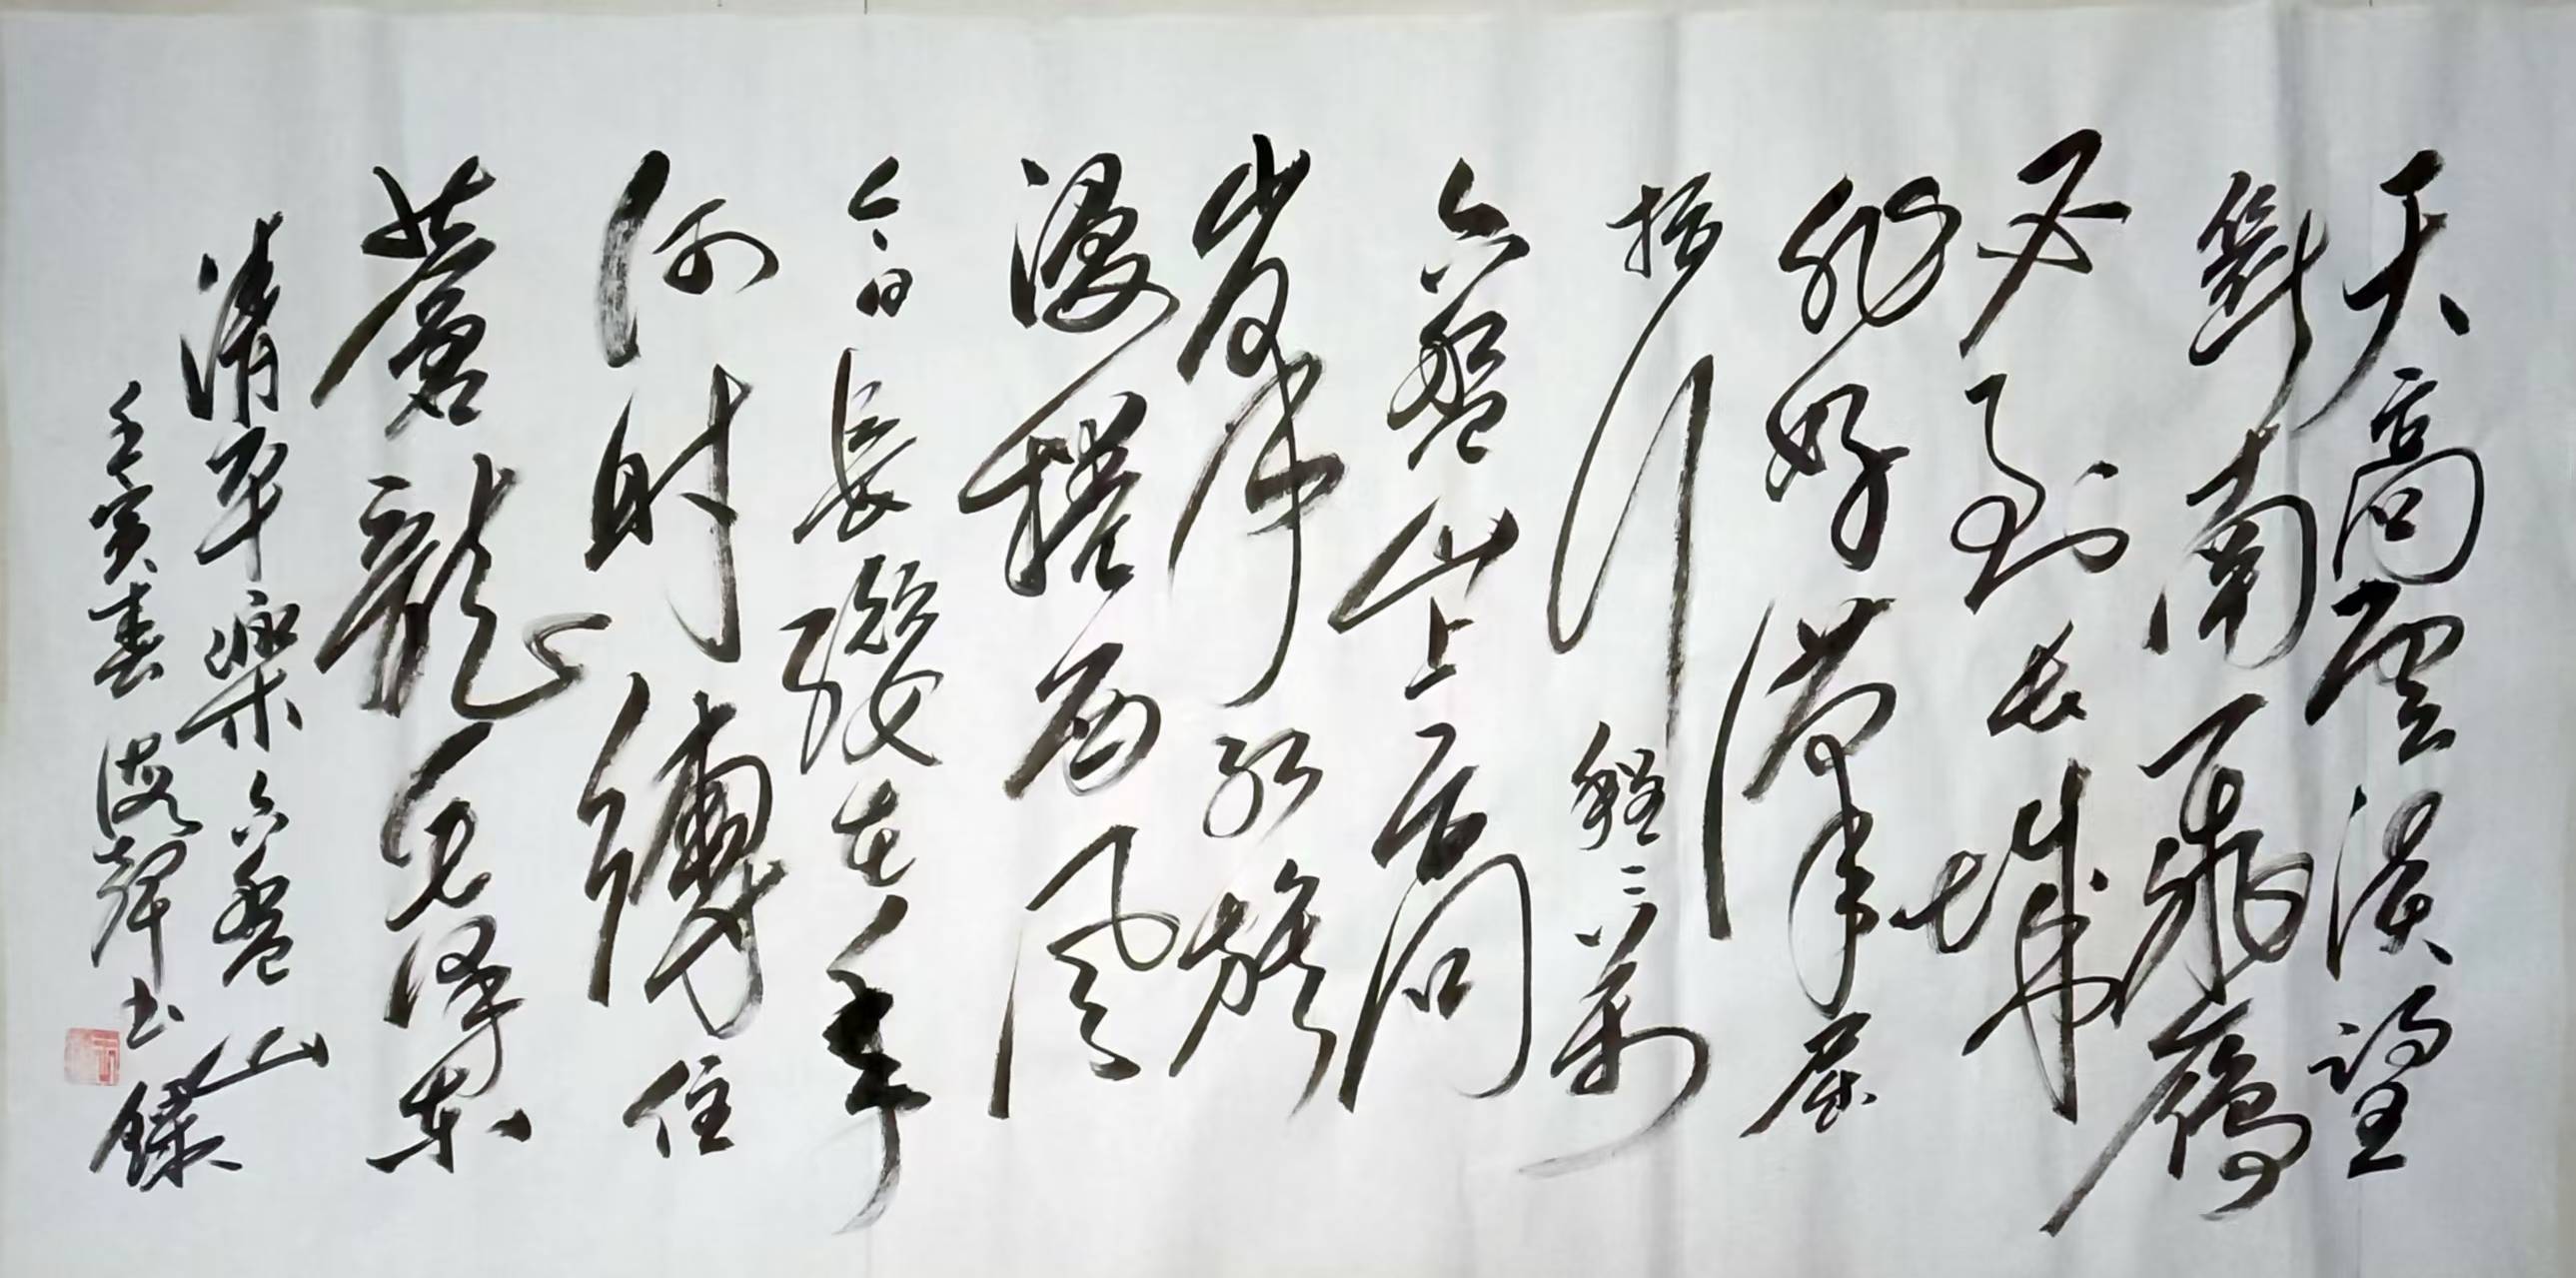 天高雲淡望
斷南飛鴈
不到長城
非好漢屈
指行程二萬
六盤山上高
峰紅旗
漫捲西風
今日長纓在手
何時縛住
蒼龍毛澤東
清平樂六盤山
壬寅春輝书錄